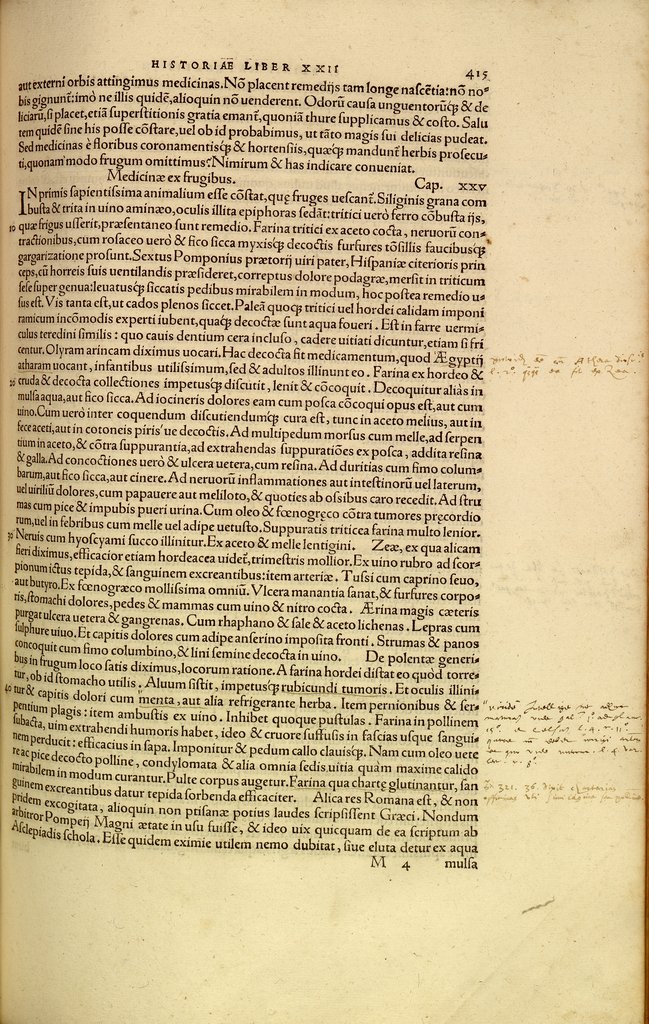 HISTORIAE LIBER XXII
415
aut externi orbis attingimus medicinas. Nõ placent remedijs tam longe nascẽtia: nõ no-
bis gignunt̃: imò ne illis quidẽ, alioquin nõ uenderent. Odorũ causa unguentorũq; & de
liciarũ, si placet, etiã superstitionis gratia emant̃, quoniã thure supplicamus & costo. Salu
tem quidẽ sine his posse cõstare, uel ob id probabimus, ut tãto magis sui delicias pudeat.
Sed medicinas è floribus coronamentisq; & hortensijs, quæq; mandunt̃ herbis prosecu-
ti, quonam modo frugum omittimus? Nimirum & has indicare conueniat.
Medicinæ ex frugibus. Cap. XXV
IN primis sapientissima animalium esse cõstat, quę fruges uescant̃. Siliginis grana com
busta & trita in uino aminæo, oculis illita epiphoras sedãt: tritici uerò ferro cõbusta ijs,
10 quæ frigus usserit, præsentaneo sunt remedio. Farina tritici ex aceto cocta, neruorũ con-
tractionibus, cum rosaceo uerò & fico sicca myxisq; decoctis furfures tõsillis faucibusq;
gargarizatione prosunt. Sextus Pomponius prætorij uiri pater, Hispaniæ citerioris prin
ceps, cũ horreis suis uentilandis præsideret, correptus dolore podagræ, mersit in triticum
sese super genua: leuatusq; siccatis pedibus mirabilem in modum, hoc postea remedio u-
sus est. Vis tanta est, ut cados plenos siccet. Paleã quoq; tritici uel hordei calidam imponi
ramicum incõmodis experti iubent, quaq; decoctæ sunt aqua foueri. Est in farre uermi-
culus teredini similis: quo cauis dentium cera incluso, cadere uitiati dicuntur, etiam si fri
centur. Olyram arincam diximus uocari. Hac decocta fit medicamentum, quod Ægyptij
atharam uocant, infantibus utilissimum, sed & adultos illinunt eo. Farina ex hordeo &
20 cruda & decocta collectiones impetusq; discutit, lenit & cõcoquit. Decoquitur aliàs in
mulsa aqua, aut fico sicca. Ad iocineris dolores eam cum posca cõcoqui opus est, aut cum
uino. Cum uerò inter coquendum discutiendumq; cura est, tunc in aceto melius, aut in
fece aceti, aut in cotoneis piris'ue decoctis. Ad multipedum morsus cum melle, ad serpen
tium in aceto, & cõtra suppurantia, ad extrahendas suppuratiões ex posca, addita resina
& galla. Ad concoctiones uerò & ulcera uetera, cum resina. Ad duritias cum fimo colum-
barum, aut fico sicca, aut cinere. Ad neruorũ inflammationes aut intestinorũ uel laterum,
uel uiriliũ dolores, cum papauere aut meliloto, & quoties ab ossibus caro recedit. Ad stru
mas cum pice & impubis pueri urina. Cum oleo & fœnogręco cõtra tumores pręcordio
rum, uel in febribus cum melle uel adipe uetusto. Suppuratis triticea farina multo lenior.
30 Neruis cum hyoscyami succo illinitur. Ex aceto & melle lentigini. Zeæ, ex qua alicam
fieri diximus, efficacior etiam hordeacea uidet̃, trimestris mollior. Ex uino rubro ad scor-
pionum ictus tepida, & sanguinem excreantibus: item arteriæ. Tussi cum caprino seuo,
aut butyro. Ex fœnogræco mollissima omniũ. Vlcera manantia sanat, & furfures corpo-
ris, stomachi dolores, pedes & mammas cum uino & nitro cocta. Ærina magis cæteris
purgat ulcera uetera & gangrenas. Cum rhaphano & sale & aceto lichenas. Lepras cum
sulphure uiuo. Et capitis dolores cum adipe anserino imposita fronti. Strumas & panos
concoquit cum fimo columbino, & lini semine decocta in uino. De polentæ generi-
bus in frugum loco satis diximus, locorum ratione. A farina hordei distat eo quòd torre-
tur, ob id stomacho utilis. Aluum sistit, impetusq; rubicundi tumoris. Et oculis illini-
40 tur & capitis dolori cum menta, aut alia refrigerante herba. Item pernionibus & ser-
pentium plagis: item ambustis ex uino. Inhibet quoque pustulas. Farina in pollinem
subacta, uim extrahendi humoris habet, ideo & cruore suffusis in fascias usque sangui-
nem perducit: efficacius in sapa. Imponitur & pedum callo clauisq;. Nam cum oleo uete
re ac pice decocto polline, condylomata & alia omnia sedis uitia quàm maxime calido
mirabilem in modum curantur. Pulte corpus augetur. Farina qua chartę glutinantur, san
guinem excreantibus datur tepida sorbenda efficaciter. Alica res Romana est, & non
pridem excogitata, alioquin non ptisanæ potius laudes scripsissent Græci. Nondum
arbitror Pompeij Magni ætate in usu fuisse, & ideo uix quicquam de ea scriptum ab
Asclepiadis schola. Esse quidem eximie utilem nemo dubitat, siue eluta detur ex aqua
M 4 mulsa